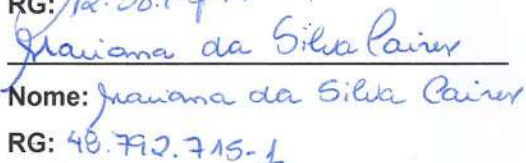 RG:
Mariana da Silva Caires
Nome: Mariana da Silva Caires
RG: 48.792.715-1